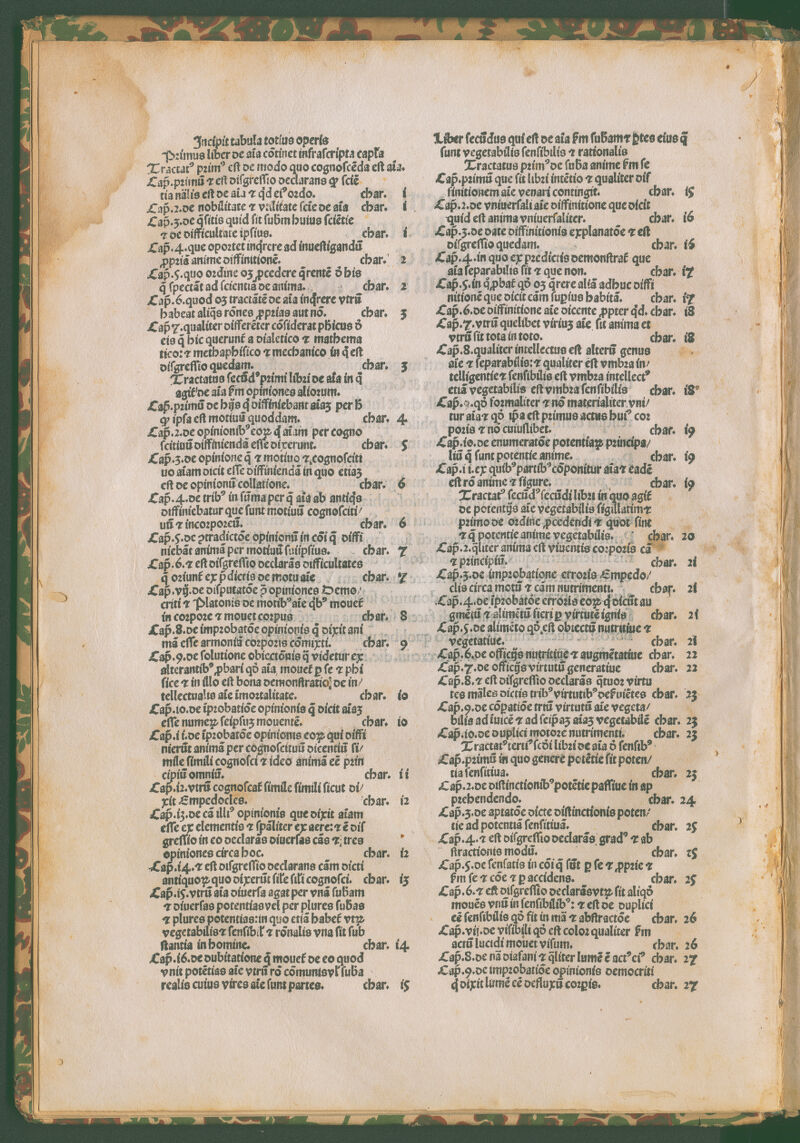 Incipit tabula totius operis
Primus liber de aīa cōtinet infrascripta capĺa
Tractatꝰ primꝰ est de modo quo cognoscēda est aīa.
Cap̄.primū ⁊ est disgressio declarans ꝙ sciē
tia nālis est de aīa ⁊ qd̄ eiꝰ ordo. char. i
Cap̄.2.de nobilitate ⁊ vtilitate scīe de aīa char. i
Cap̄.3.de q̄sitis quid sit subm̄ huius sciētie
⁊ de difficultate ipsius. char. i
Cap̄.4.que oportet inq̄rere ad inuestigandū
ꝓpriā anime diffinitionē. char. 2
Cap̄.5.quo ordine oꝫ ꝓcedere q̄rentē ō his
q̄ spectāt ad scientiā de anima. char. 2
Cap̄.6.quod oꝫ tractātē de aīa inq̄rere vtrū
habeat aliq̄s rōnes ꝓprias aut nō. char. 3
Cap̄.7.qualiter differēter cōsiderat phicus ō
eis q̄ hic querunť a dialetico ⁊ mathema
tico: ⁊ methaphisico ⁊ mechanico in q̄ est
disgressio quedam. char. 3
Tractatus secūdꝰ primi libri de aīa in q̄
agiť de aīa ẜm opiniones aliorum.
Cap̄.primū de hijs q̄ diffiniebant aīaꝫ per h̄
ꝙ ipsa est motiuū quoddam. char. 4
Cap̄.2.de opinionibꝰ eoꝝ q̄ aīam per cogno
scitiuū diffiniendā esse dixerunt. char. 5
Cap̄.3.de opinione q̄ ⁊ motiuo ⁊ cognosciti
uo aīam dicit esse diffiniendā in quo etiaꝫ
est de opinionū collatione. char. 6
Cap̄.4.de tribꝰ in sūma per q̄ aīa ab antiq̄s
diffiniebatur que sunt motiuū cognosciti/
uū ⁊ incorporeū. char. 6
Cap̄.5.de ꝯtradictōe opinionū in cōi q̄ diffi
niebāt animā per motiuū suiipsius. char. 7
Cap̄.6.⁊ est disgressio declarās difficultates
q̄ oriunť ex p̄dictis de motu aīe char. 7
Cap̄.vij.de disputatōe ꝯ opiniones Demo/
criti ⁊ Platonis de motibꝰ aīe qb̄ꝰ moueť
in corpore ⁊ mouet corpus char. 8
Cap̄.8.de improbatōe opinionis q̄ dixit ani
mā esse armoniā corporis cōmixti. char. 9
Cap̄.9.de solutione obiectōnis q̄ videtur ex
alterantibꝰ ꝓbari qō aīa moueť ꝑ se ⁊ phi
sice ⁊ in illo est bona demonstratio de in/
tellectualis aīe īmortalitate. char. io
Cap̄.io.de īprobatōe opinionis q̄ dicit aīaꝫ
esse numeꝝ seipsuꝫ mouentē. char. io
Cap̄.ii.de īprobatōe opinionis eoꝝ qui diffi
nierūt animā per cognoscituū dicentiū si/
mile simili cognosci ⁊ ideo animā eē prin
cipiū omniū. char. ii
Cap̄.i2.vtrū cognoscať simile simili sicut di/
xit Empedocles. char. i2
Cap̄.i3.de cā illiꝰ opinionis que dixit aīam
esse ex elementis ⁊ spāliter ex aere: ⁊ ē dis
gressio in eo declarās diuersas cās ⁊ tres
opiniones circa hoc. char. i2
Cap̄.i4.⁊ est disgressio declarans cām dicti
antiquoꝝ quo dixerūt sīle sīli cognosci. char. i3
Cap̄.i5.vtrū aīa diuersa agat per vnā subam
⁊ diuersas potentias vel per plures subas
⁊ plures potentias: in quo etiā habeť vtꝝ
vegetabilis ⁊ sensibił ⁊ rōnalis vna sit sub
stantia in homine. char. i4
Cap̄.i6.de dubitatione q̄ moueť de eo quod
vnit potētias aīe vtrū rō cōmunis vł suba
realis cuius vires aīe sunt partes. char. i5
Liber secūdus qui est de aīa ẜm subam ⁊ ptes eius q̄
sunt vegetabilis sensibilis ⁊ rationalis
Tractatus primꝰ de suba anime ẜm se
Cap̄.primū que sit libri intētio ⁊ qualiter dif
finitionem aīe venari contingit. char. i5
Cap̄.2.de vniuersali aīe diffinitione que dicit
quid est anima vniuersaliter. char. i6
Cap̄.3.de date diffinitionis explanatōe ⁊ est
disgressio quedam. char. i6
Cap̄.4.in quo ex predictis demonstrať que
aīa separabilis sit ⁊ que non. char. i7
Cap̄.5.in q̄ ꝓbať qō oꝫ q̄rere aliā adhuc diffi
nitionē que dicit cām supius habitā. char. i7
Cap̄.6.de diffinitione aīe dicente ꝓpter qd̄. char. i8
Cap̄.7.vtrū quelibet viriuꝫ aīe sit anima et
vtrū sit tota in toto. char. i8
Cap̄.8.qualiter intellectus est alterū genus
aīe ⁊ separabilis: ⁊ qualiter est vmbra in/
telligentie ⁊ sensibilis est vmbra intellectꝰ
etiā vegetabilis est vmbra sensibilis char. i8
Cap̄.9.qō formaliter ⁊ nō materialiter vni/
tur aīa ⁊ qō ip̄a est primus actus huiꝰ cor
poris ⁊ nō cuiuslibet. char. i9
Cap̄.io.de enumeratōe potentiaꝝ principa/
liū q̄ sunt potentie anime. char. i9
Cap̄.ii.ex quibꝰ partibꝰ cōponitur aīa ⁊ eadē
est rō anime ⁊ figure. char. i9
Tractatꝰ secūdꝰ secūdi libri in quo agiť
de potentijs aīe vegetabilis sigillatim ⁊
primo de ordine ꝓcedendi ⁊ quot sint
⁊ q̄ potentie anime vegetabilis. char. 20
Cap̄.2.qliter anima est viuentis corporis cā
⁊ principiū. char. 2i
Cap̄.3.de improbatione erroris Empedo/
clis circa motū ⁊ cām nutrimenti. char. 2i
Cap̄.4.de īprobatōe erroris eoꝝ q̄ dicūt au
gmētū ⁊ alimētū fieri ꝑ virtutē ignis char. 2i
Cap̄.5.de alimēto qō est obiectū nutritiue ⁊
vegetatiue. char. 2i
Cap̄.6.de officijs nutritiue ⁊ augmētatiue char. 22
Cap̄.7.de officijs virtutū generatiue char. 22
Cap̄.8.⁊ est disgressio declarās q̄tuor virtu
tes māles dictis tribꝰ virtutibꝰ deẜuiētes char. 23
Cap̄.9.de cōpatiōe triū virtutū aīe vegeta/
bilis ad īuicē ⁊ ad seip̄aꝫ aīaꝫ vegetabilē char. 23
Cap̄.io.de duplici motore nutrimenti. char. 23
Tractatꝰ tertiꝰ scd̄i libri de aīa ō sensibꝰ
Cap̄.primū in quo genere potētie sit poten/
tia sensitiua. char. 23
Cap̄.2.de distinctionibꝰ potētie passiue in ap
prehendendo. char. 24
Cap̄.3.de aptatōe dicte distinctionis poten/
tie ad potentiā sensitiuā. char. 25
Cap̄.4.⁊ est disgressio declarās gradꝰ ⁊ ab
stractionis modū. char. 25
Cap̄.5.de sensatis in cōi q̄ sūt ꝑ se ⁊ ꝓprie ⁊
ẜm se ⁊ cōe ⁊ ꝑ accidens. char. 25
Cap̄.6.⁊ est disgressio declarās vtꝝ sit aliqō
mouēs vnū in sensibilibꝰ: ⁊ est de duplici
eē sensibilis qō sit in mā ⁊ abstractōe char. 26
Cap̄.vij.de visibili qō est color qualiter ẜm
actū lucidi mouet visum. char. 26
Cap̄.8.de nā diafani ⁊ qliter lumē ē actꝰ eiꝰ char. 27
Cap̄.9.de improbatiōe opinionis democriti
q̄ dixit lumē eē defluxū corpis. char. 27